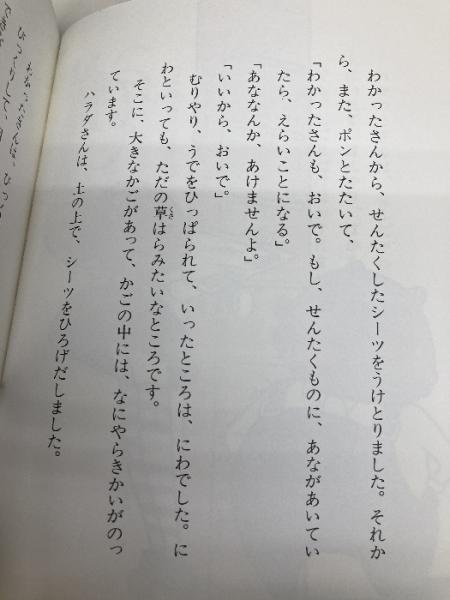 わかったさんから、せんたくしたシーツをうけとりました。それか
ら、また、ポンとたたいて、
「わかったさんも、おいで。もし、せんたくものに、あながあいてい
たら、えらいことになる。」
「あななんか、あけませんよ。」
「いいから、おいで。」
むりやり、うでをひっぱられて、いったところは、にわでした。に
わといっても、ただの草はらみたいなところです。
くさ
そこに、大きなかごがあって、かごの中には、なにやらきかいがのっ
ています。
ハラダさんは、土の上で、シーツをひろげだしました。